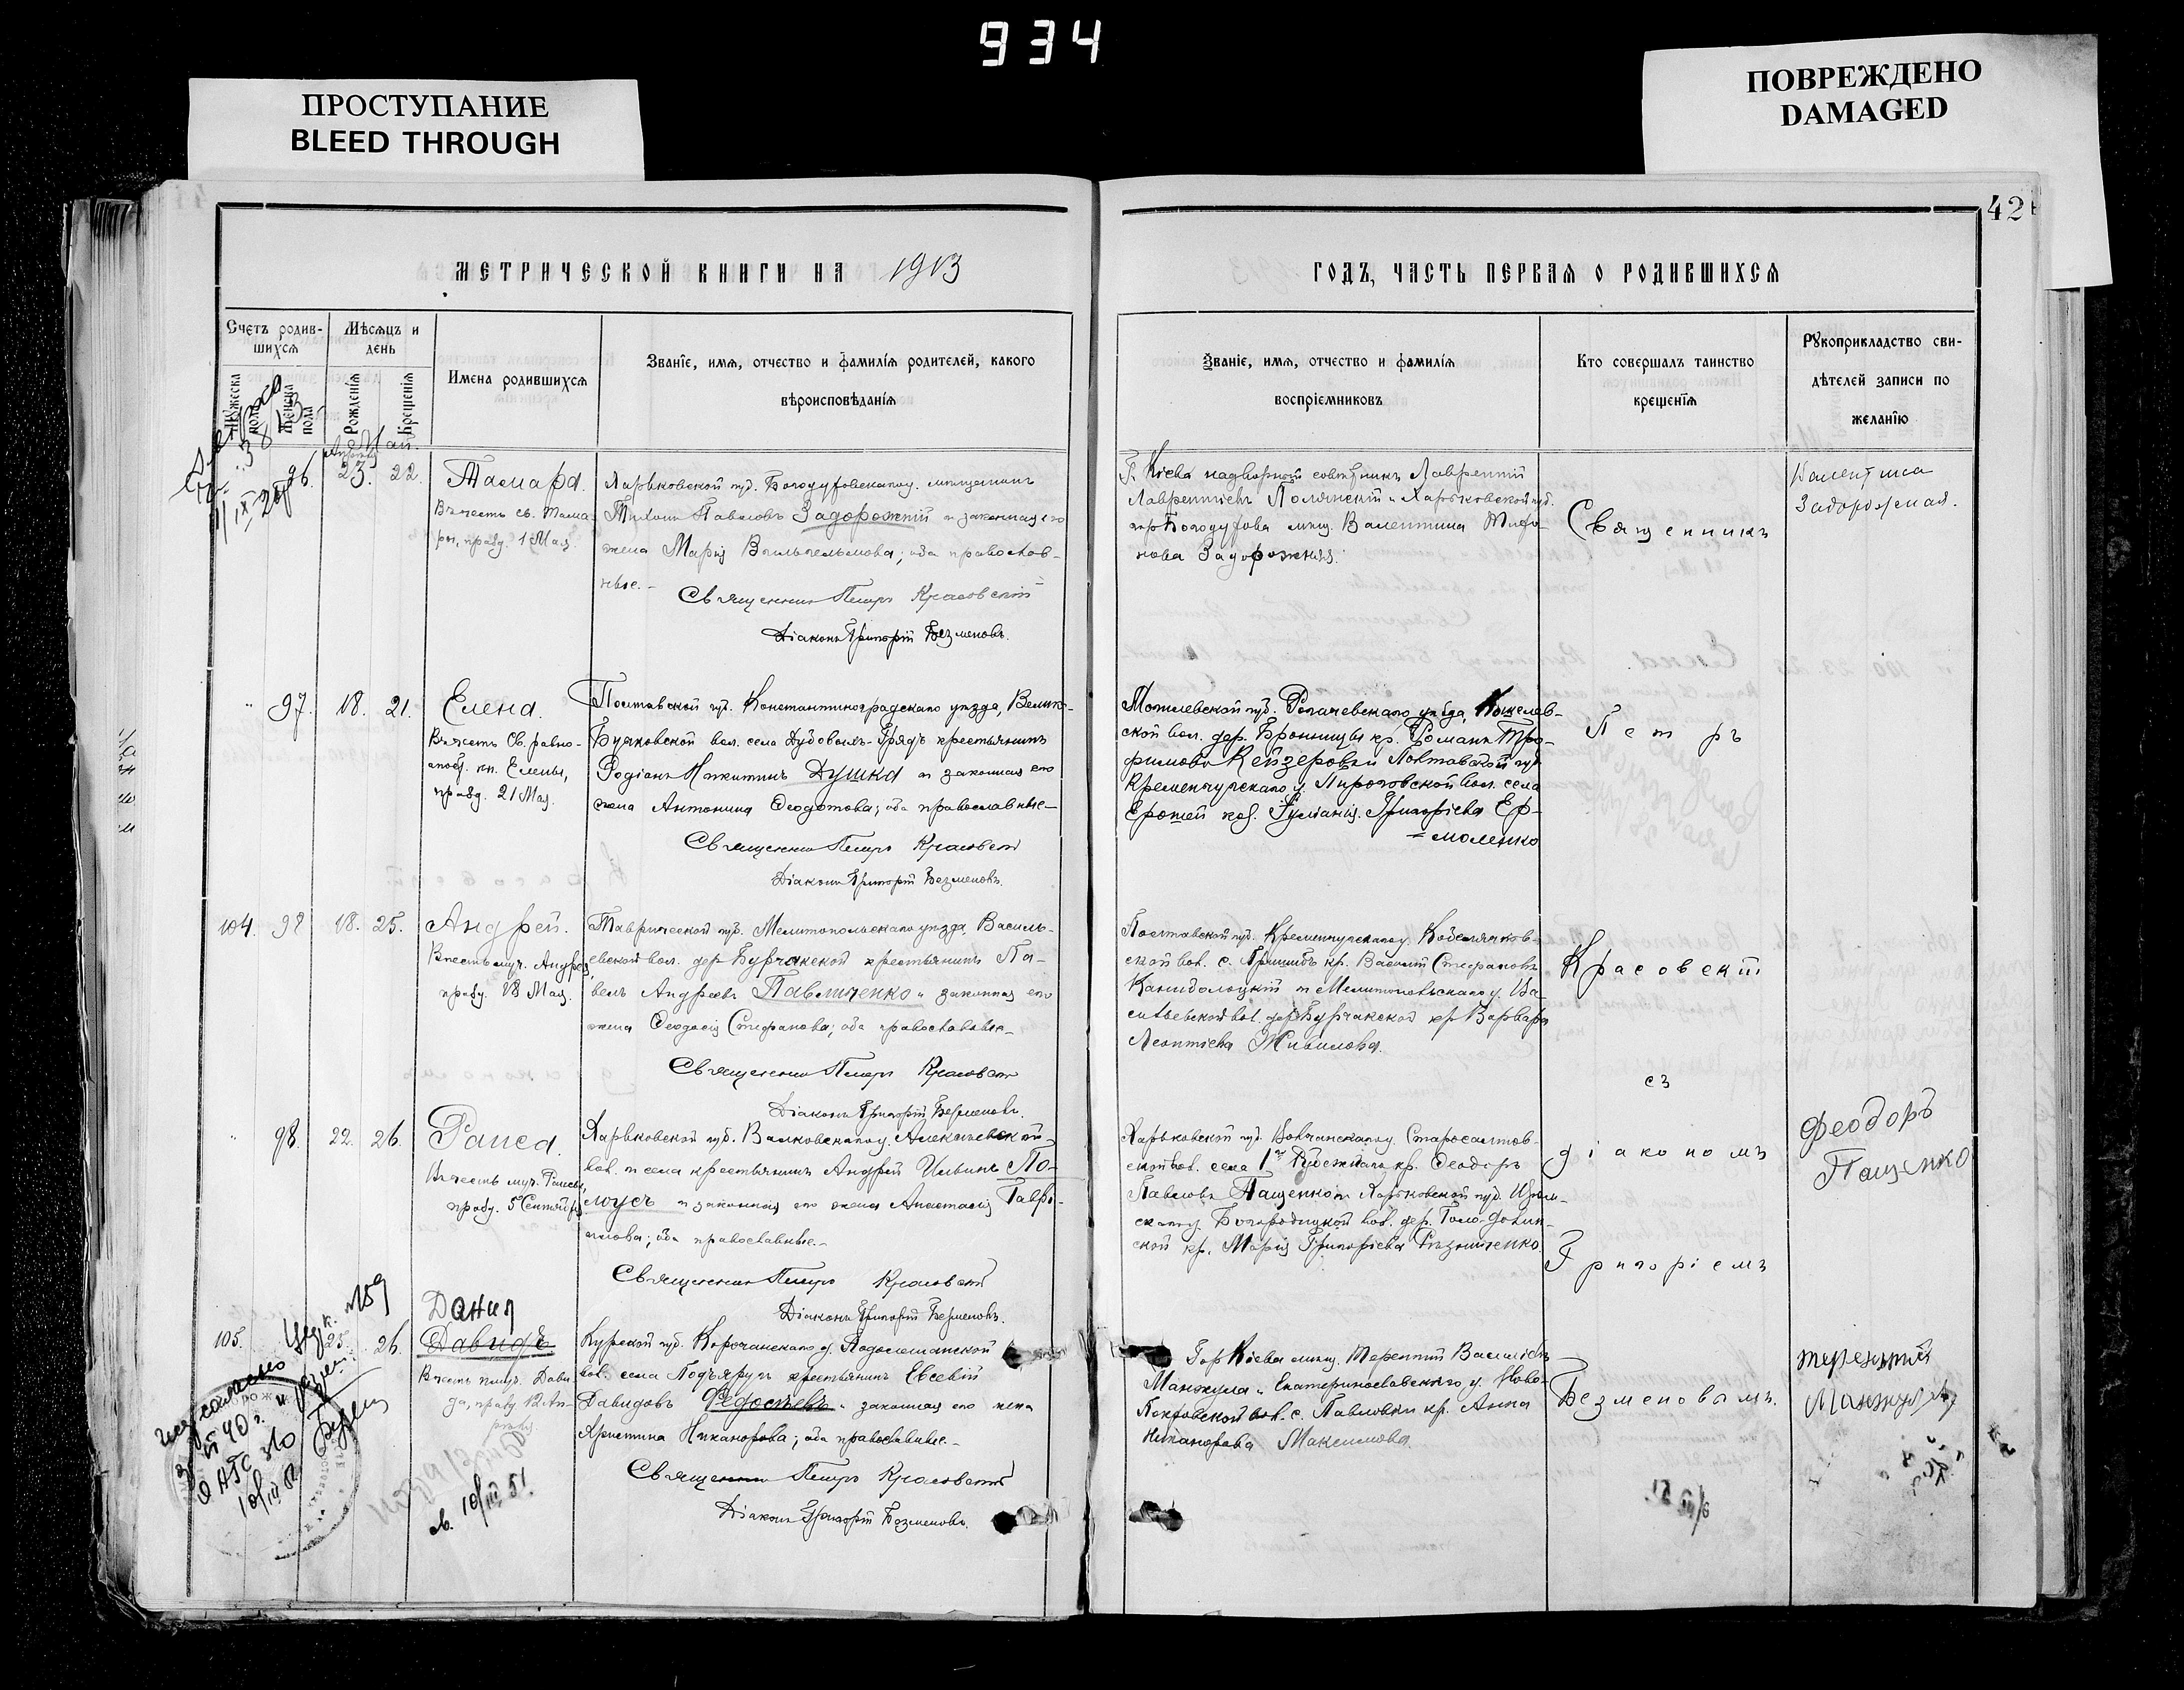 934
ПРОСТУПАНИЕ
BLEED THROUGH
ПОВРЕЖДЕНО
DAMAGED
42
МЕТРИЧЕСКОЙ КНИГИ НА 1913
ГОДЪ, ЧАСТЬ ПЕРВАЯ О РОДИВШИХСЯ
Счетъ родив-
шихся
Мѣсяцъ и
день
Мужеска
пола
Женска
пола
Рожденія
Крещенія
Имена родившихся
Званіе, имя, отчество и фамилія родителей, какого
вѣроисповѣданія
Званіе, имя, отчество и фамилія
воспріемниковъ
Кто совершалъ таинство
крещенія
Рукоприкладство сви-
дѣтелей записи по
желанію
Май.
96. 23. 22. Тамара.
Въ честь св. Тама-
ры, празд. 1 Мая.
Харьковской губ. Богодуховскаго у. мѣщанинъ
Тихонъ Павловъ Задорожній и законная его
жена Марія Вильгельмова; оба православ-
ные.
Священникъ Петръ Красовскій
Діаконъ Григорій Безменовъ.
Г. Кіева надворный совѣтникъ Лаврентій
Лаврентіевъ Полянскій и Харьковской губ.
гор. Богодухова мѣщ. Валентина Тихо-
нова Задорожняя.
Священникъ
Валентина
Задорожная.
97. 18. 21. Елена.
Въ честь Св. равно-
апост. кн. Елены,
празд. 21 Мая.
Полтавской губ. Константиноградскаго уѣзда, Велико-
Бучковской вол. села Дубовыхъ-Грядъ крестьянинъ
Родіонъ Никитинъ Душка и законная его
жена Антонина Ѳеодотова; оба православные
Священникъ Петръ Красовскій
Діаконъ Григорій Безменовъ.
Могилевской губ. Рогачевскаго уѣзда, Кошелев-
ской вол. дер. Бронницы кр. Романъ Тро-
фимовъ Кейзеровъ и Полтавской губ.
Кременчугскаго у. Пироговской вол. села
Григоріева Ер-
=моленко
Петръ
104. 18. 25. Андрей.
Въ честь муч. Андрея,
празд. 18 Мая.
Таврической губ. Мелитопольскаго уѣзда, Василь-
евской вол. дер. Бурчакской крестьянинъ Па-
велъ Андреевъ Павличенко и законная его
жена Ѳеодосія Стефанова; оба православные
Священникъ Петръ Красовскій
Діаконъ Григорій Безменовъ.
Полтавской губ. Кременчугскаго у. Кобелячков-
ской вол. с. кр. Василій Стефановъ
и Мелитопольскаго у. Ва-
сильевской вол. дер. Бурчакской кр. Варвара
Леонтіева Живилова.
Красовскій
съ
98. 22. 26. Раиса.
Въ честь муч. Раисы,
празд. 5 Сентября
Харьковской губ. Валковскаго у. Алексѣевской
вол. и села крестьянинъ Андрей Ильинъ По-
лоусъ и законная его жена Анастасія Гаврі-
илова; оба православные.
Священникъ Петръ Красовскій
Діаконъ Григорій Безменовъ.
Харьковской губ. Волчанскаго у. Старосалтов-
ской вол. села 1го кр. Ѳеодоръ
Павловъ Пащенко и Харьковской губ. Изюм-
скаго у. Богородицкой вол. дер. Голо-Долин-
ской кр. Марія Григоріева Рѣзниченко.
діакономъ
Григоріемъ
Феодоръ
Пащенко
105. 25. 26. Данил
Давидъ
Курской губ. Корочанскаго у.
вол. села Подъяругъ крестьянинъ Евсевій
Давидовъ Федосѣевъ и законная его жена
Христина Никанорова; оба православные.
Священникъ Петръ Красовскій
Діаконъ Григорій Безменовъ.
ов. 10/III 51.
Гор. Кіева мѣщ. Терентій Василіевъ
Манжула и Екатеринославскаго у. Ново-
Покровской вол. с. Павловки кр. Анна
Никанорова Максимова.
Безменовымъ.
Терентій